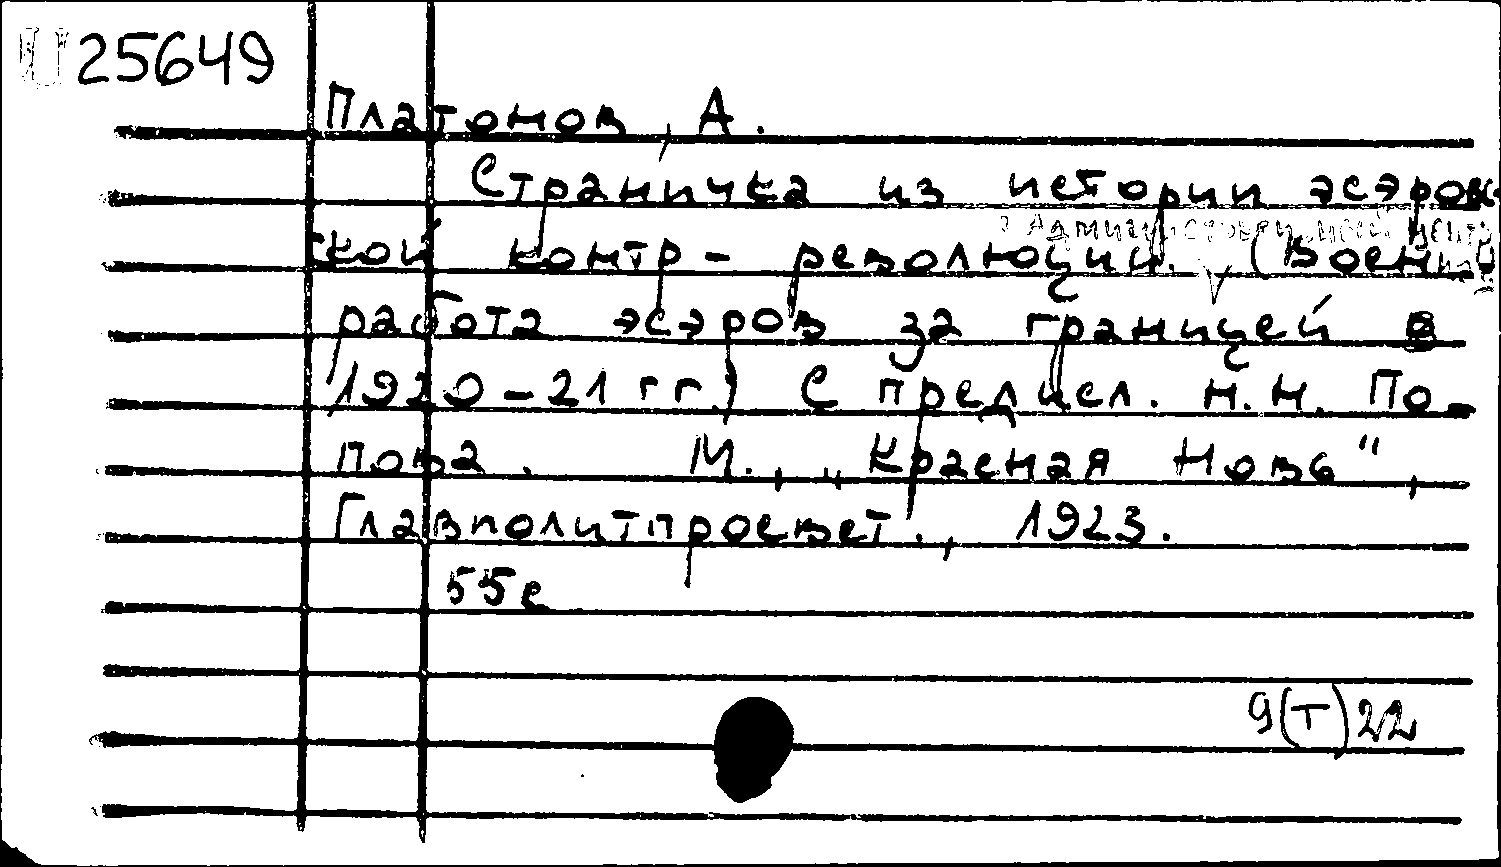 U 25649
Платонов, А.
Страничка из истории эсэровс-
кой контр-революции. (Военн.
"Административный центр"
работа эсэров за границей в
1920-21 гг.) С предисл. Н.Н. По-
пова. М., "Красная Новь",
Главполитпросвет., 1923.
55с
9(Т)22